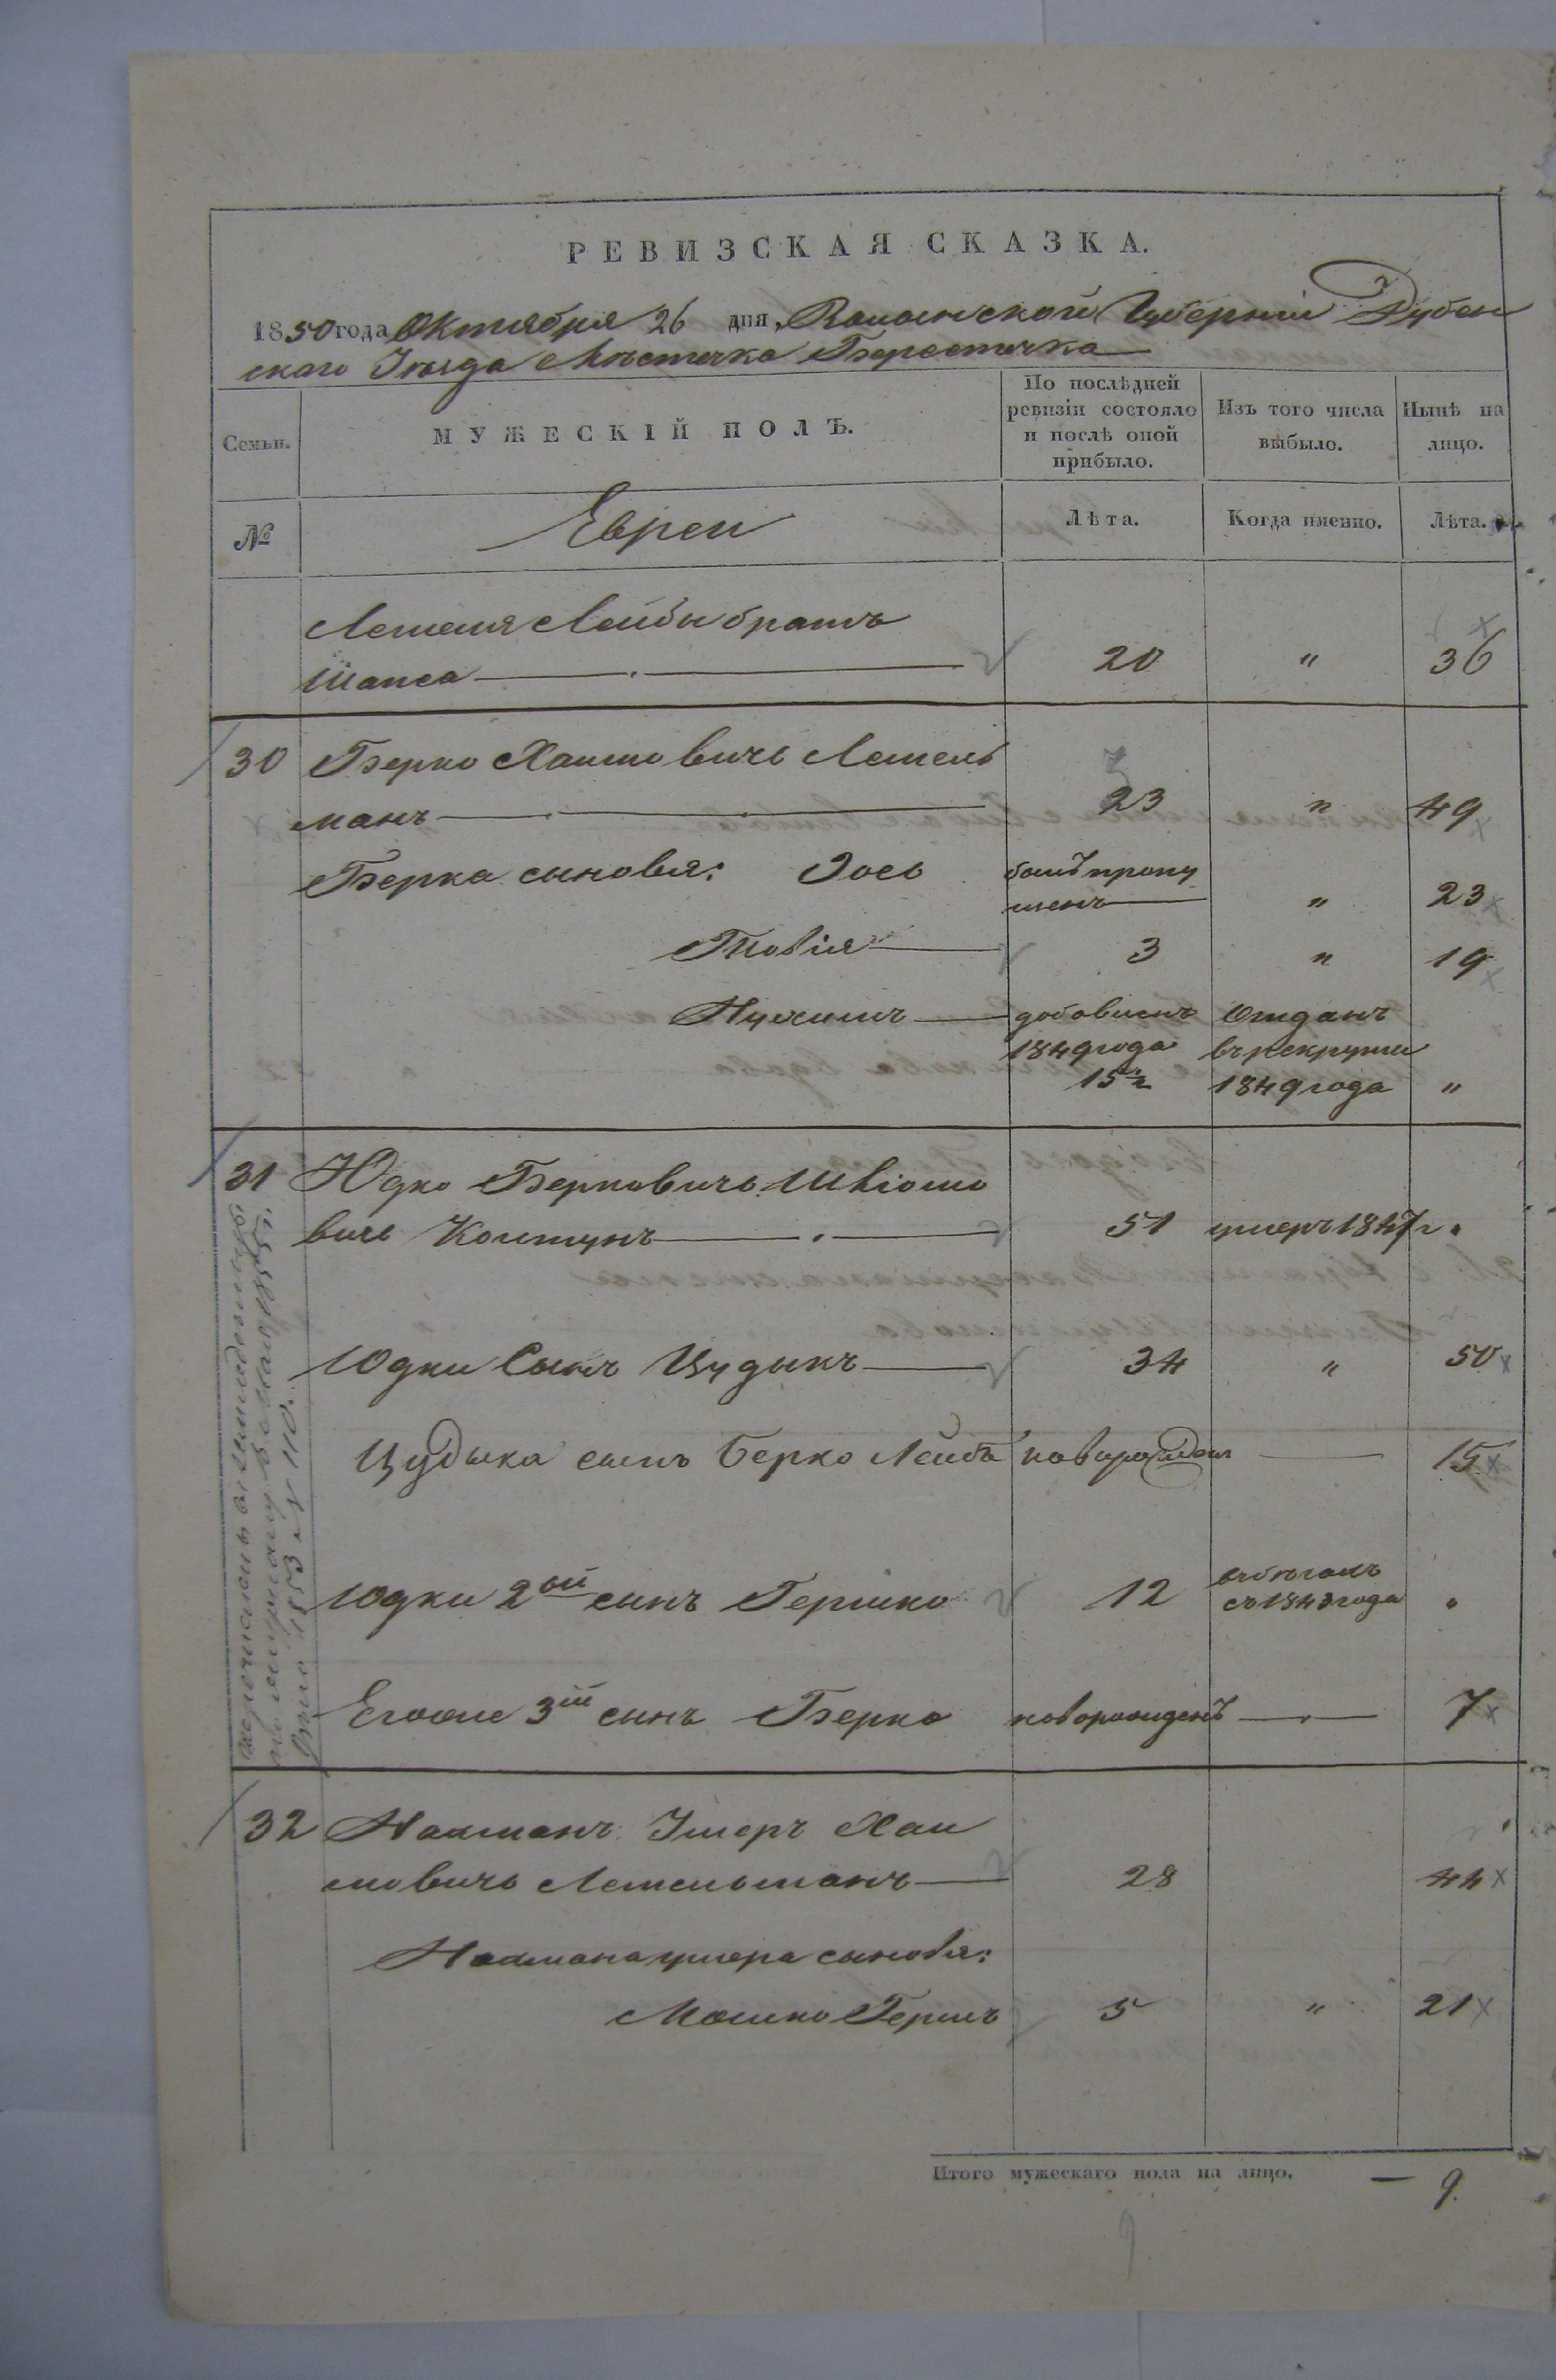 РЕВИЗСКАЯ СКАЗКА.
1850 года Октября 26 дня, Волынской Губерніи Дубен
скаго Уѣзда Мѣстечка Берестечка
Семьи.
МУЖЕСКІЙ ПОЛЪ.
По послѣдней
ревизіи состояло
и послѣ оной
прибыло.
Изъ того числа
выбыло.
Нынѣ на
лицо.
№
Евреи
Лѣта.
Когда именно.
Лѣта.
Лейбы братъ
Шапса 20 " 36
30 Берко Хаимовичъ Летель
манъ 23 " 49
Берка сыновья: Іось былъ пропу
щенъ " 23
Товія 3 " 19
Нухимъ добавленъ Отданъ
1849 года въ рекруты
15 1/2 1849 года "
31 Юдко Берковичъ Шліомо
вичъ Колтунъ 51 умеръ 1847 г "
Юдки Сынъ Цудыкъ 34 " 50
Цудыка сынъ Берко Лейба новорожден 15
Юдки 2ой сынъ Гершко 12 въ бѣгахъ
съ 1843 года "
Егоже 3ій сынъ Берко новорожденъ 7
1853 № 110.
32 Нахманъ Ушеръ Хаи
мовичъ Летельманъ 28 44
Нахмана ушера сыновья:
Мошко Гершъ 5 " 21
Итого мужескаго пола на лицо. — 9.
9